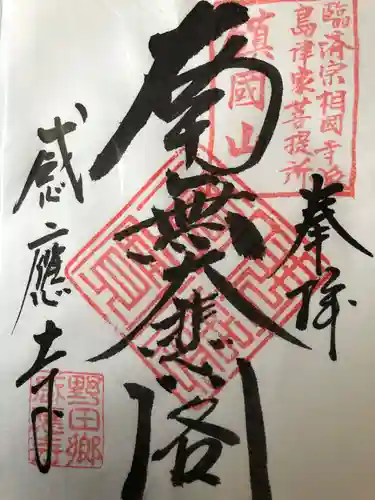 臨済宗相国寺派
島津家菩提所
鎮國山
奉拝
南無大悲閣
感應寺
野田郷